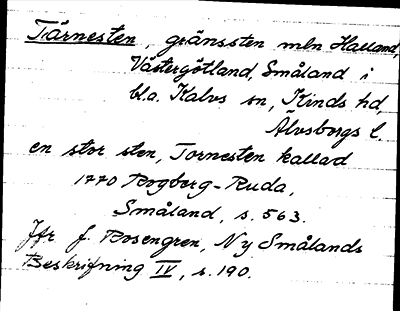 Tärnesten, gränssten mln Halland,
Västergötland, Småland i
bl.a. Kalvs sn, Kinds hd,
Älvsborgs l.
en stor sten, Tornesten kallad
1770 Rogberg-Ruda,
Småland, s. 563.
Jfr J. Rosengren, Ny Smålands
Beskrifning IV, s. 190.